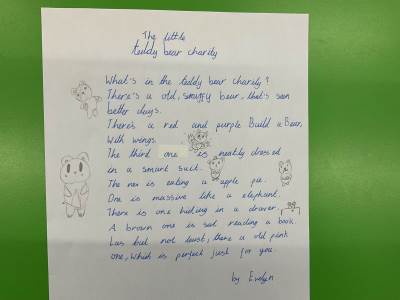 The little
teddy bear charity
What's in the teddy bear charity?
There's a old, snuffy bear, that's seen
better days.
There's a red and purple Build a Bear,
With wings.
The third one is neatly dressed
in a smart suit.
The nex is eating a apple pie.
One is massive like a elephant.
There is one hiding in a drawer.
A brown one is sat reading a book.
Las but not least, there a old pink
one, which is perfect just for you.
by Evelyn